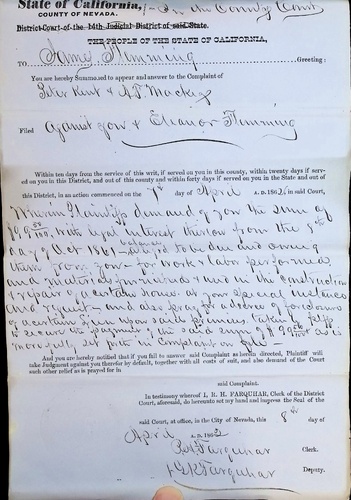 State of California, In the County Court
COUNTY OF NEVADA.
District Court of the 14th Judicial District of said State.
THE PEOPLE OF THE STATE OF CALIFORNIA,
TO James Flemming Greeting:
You are hereby Summoned to appear and answer to the Complaint of
Peter Kent & A. F. Mackay
Filed against you & Eleanor Flemming
Within ten days from the service of this writ, if served on you in this county, within twenty days if serv-
ed on you in this District, and out of this county and within forty days if served on you in the State and out of
this District, in an action commenced on the day of April A. D. 1862 in said Court,
Wherein Plaintiffs demand of you the sum of
with legal interest thereon from the 8th
day of Oct 1861 balance to be due and owing
them from you for work & labor performed
and materials furnished & used in the construction
& repair of a certain house at your special instance
and request and also pray for a decree of foreclosure
of a certain lien upon said premises taken by Plffs
to secure the payment of the said sum of as is
more fully set forth in Complaint on file
And you are hereby notified that if you fail to answer said Complaint as herein directed, Plaintiff will
take Judgment against you therefor by default, together with all costs of suit, and also demand of the Court
such other relief as is prayed for in
said Complaint.
In testimony whereof I, R. H. FARQUHAR, Clerk of the District
Court, aforesaid, do hereunto set my hand and impress the Seal of the
said Court, at office, in the City of Nevada, this 8th day of
April A. D. 1862
R H Farquhar Clerk.
Farquhar Deputy.